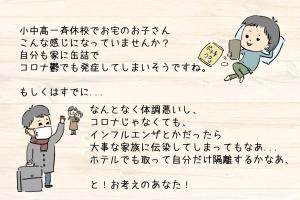 小中高一斉休校でお宅のお子さん
こんな感じになっていませんか？
自分も家に缶詰で
コロナ鬱でも発症してしまいそうですね。
もしくはすでに...
なんとなく体調悪いし、
コロナじゃなくても、
インフルエンザとかだったら
大事な家族に伝染してしまってもなあ...
ホテルでも取って自分だけ隔離するかなあ、
と！お考えのあなた！